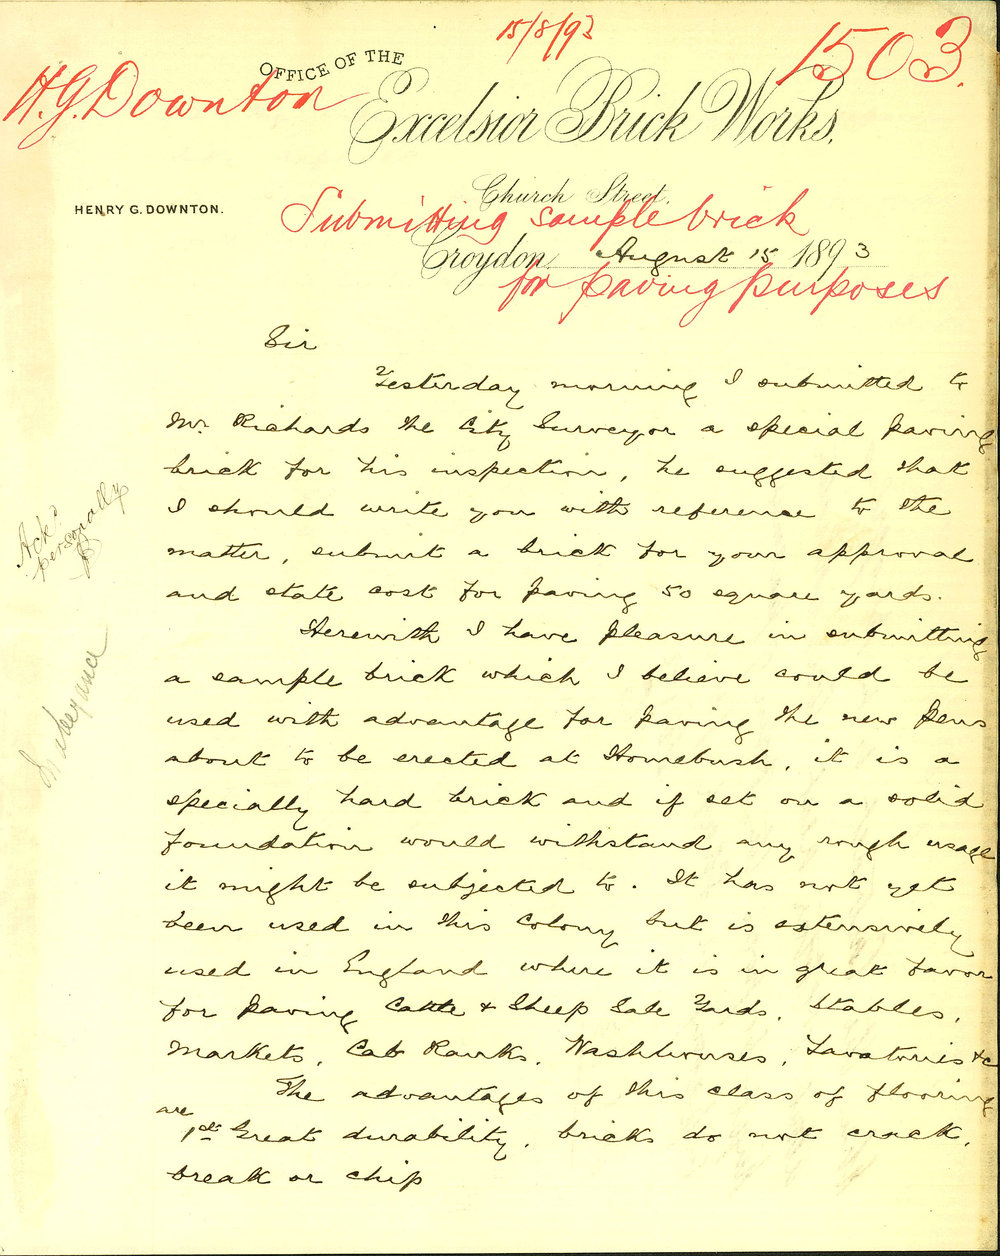 15/8/93
1503.
H.G. Downton
OFFICE OF THE
Excelsior Brick Works.
Church Street.
HENRY G. DOWNTON.
Submitting sample brick
Croydon, August 15 1893
for paving purposes
Sir
Yesterday morning I submitted to
Mr. Richards the City Surveyor a special paving
brick for his inspection, he suggested that
I should write you with reference to the
matter, submit a brick for your approval
and state cost for paving 50 square yards.
Herewith I have pleasure in submitting
a sample brick which I believe could be
used with advantage for paving the new Pens
about to be erected at Homebush, it is a
specially hard brick and if set on a solid
foundation would withstand any rough usage
it might be subjected to. It has not yet
been used in this Colony but is extensively
used in England where it is in great favor
for paving Cattle & Sheep Sale Yards, Stables,
Markets, Cab Ranks, Washhouses, Lavatories &c
The advantages of this class of flooring
are
1st Great durability, bricks do not crack,
break or chip
Ackd
personally
In abeyance